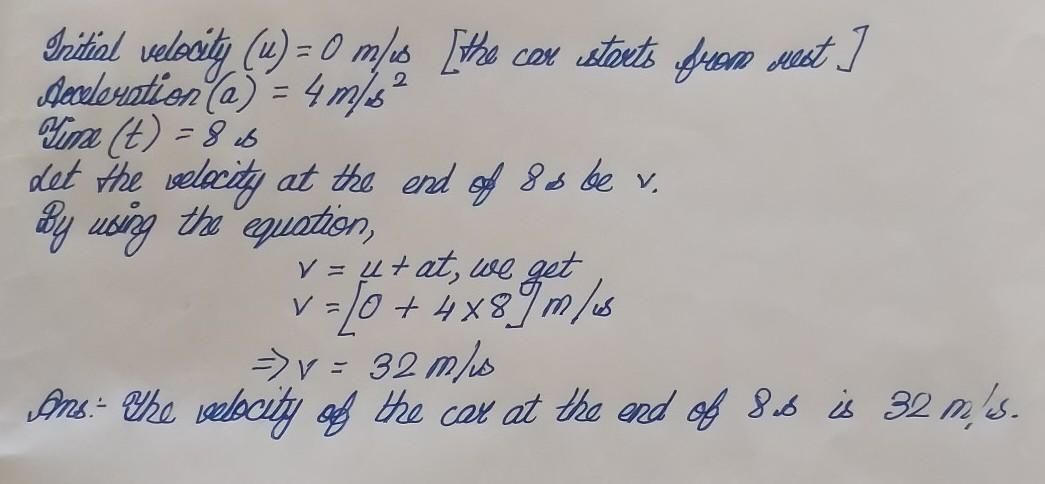 Initial velocity (u) = 0 m/s [the car starts from rest]
Acceleration (a) = 4 m/s²
Time (t) = 8 s
Let the velocity at the end of 8 s be v.
By using the equation,
v = u + at, we get
v = [0 + 4 × 8] m/s
⇒ v = 32 m/s
Ans:- The velocity of the car at the end of 8 s is 32 m/s.